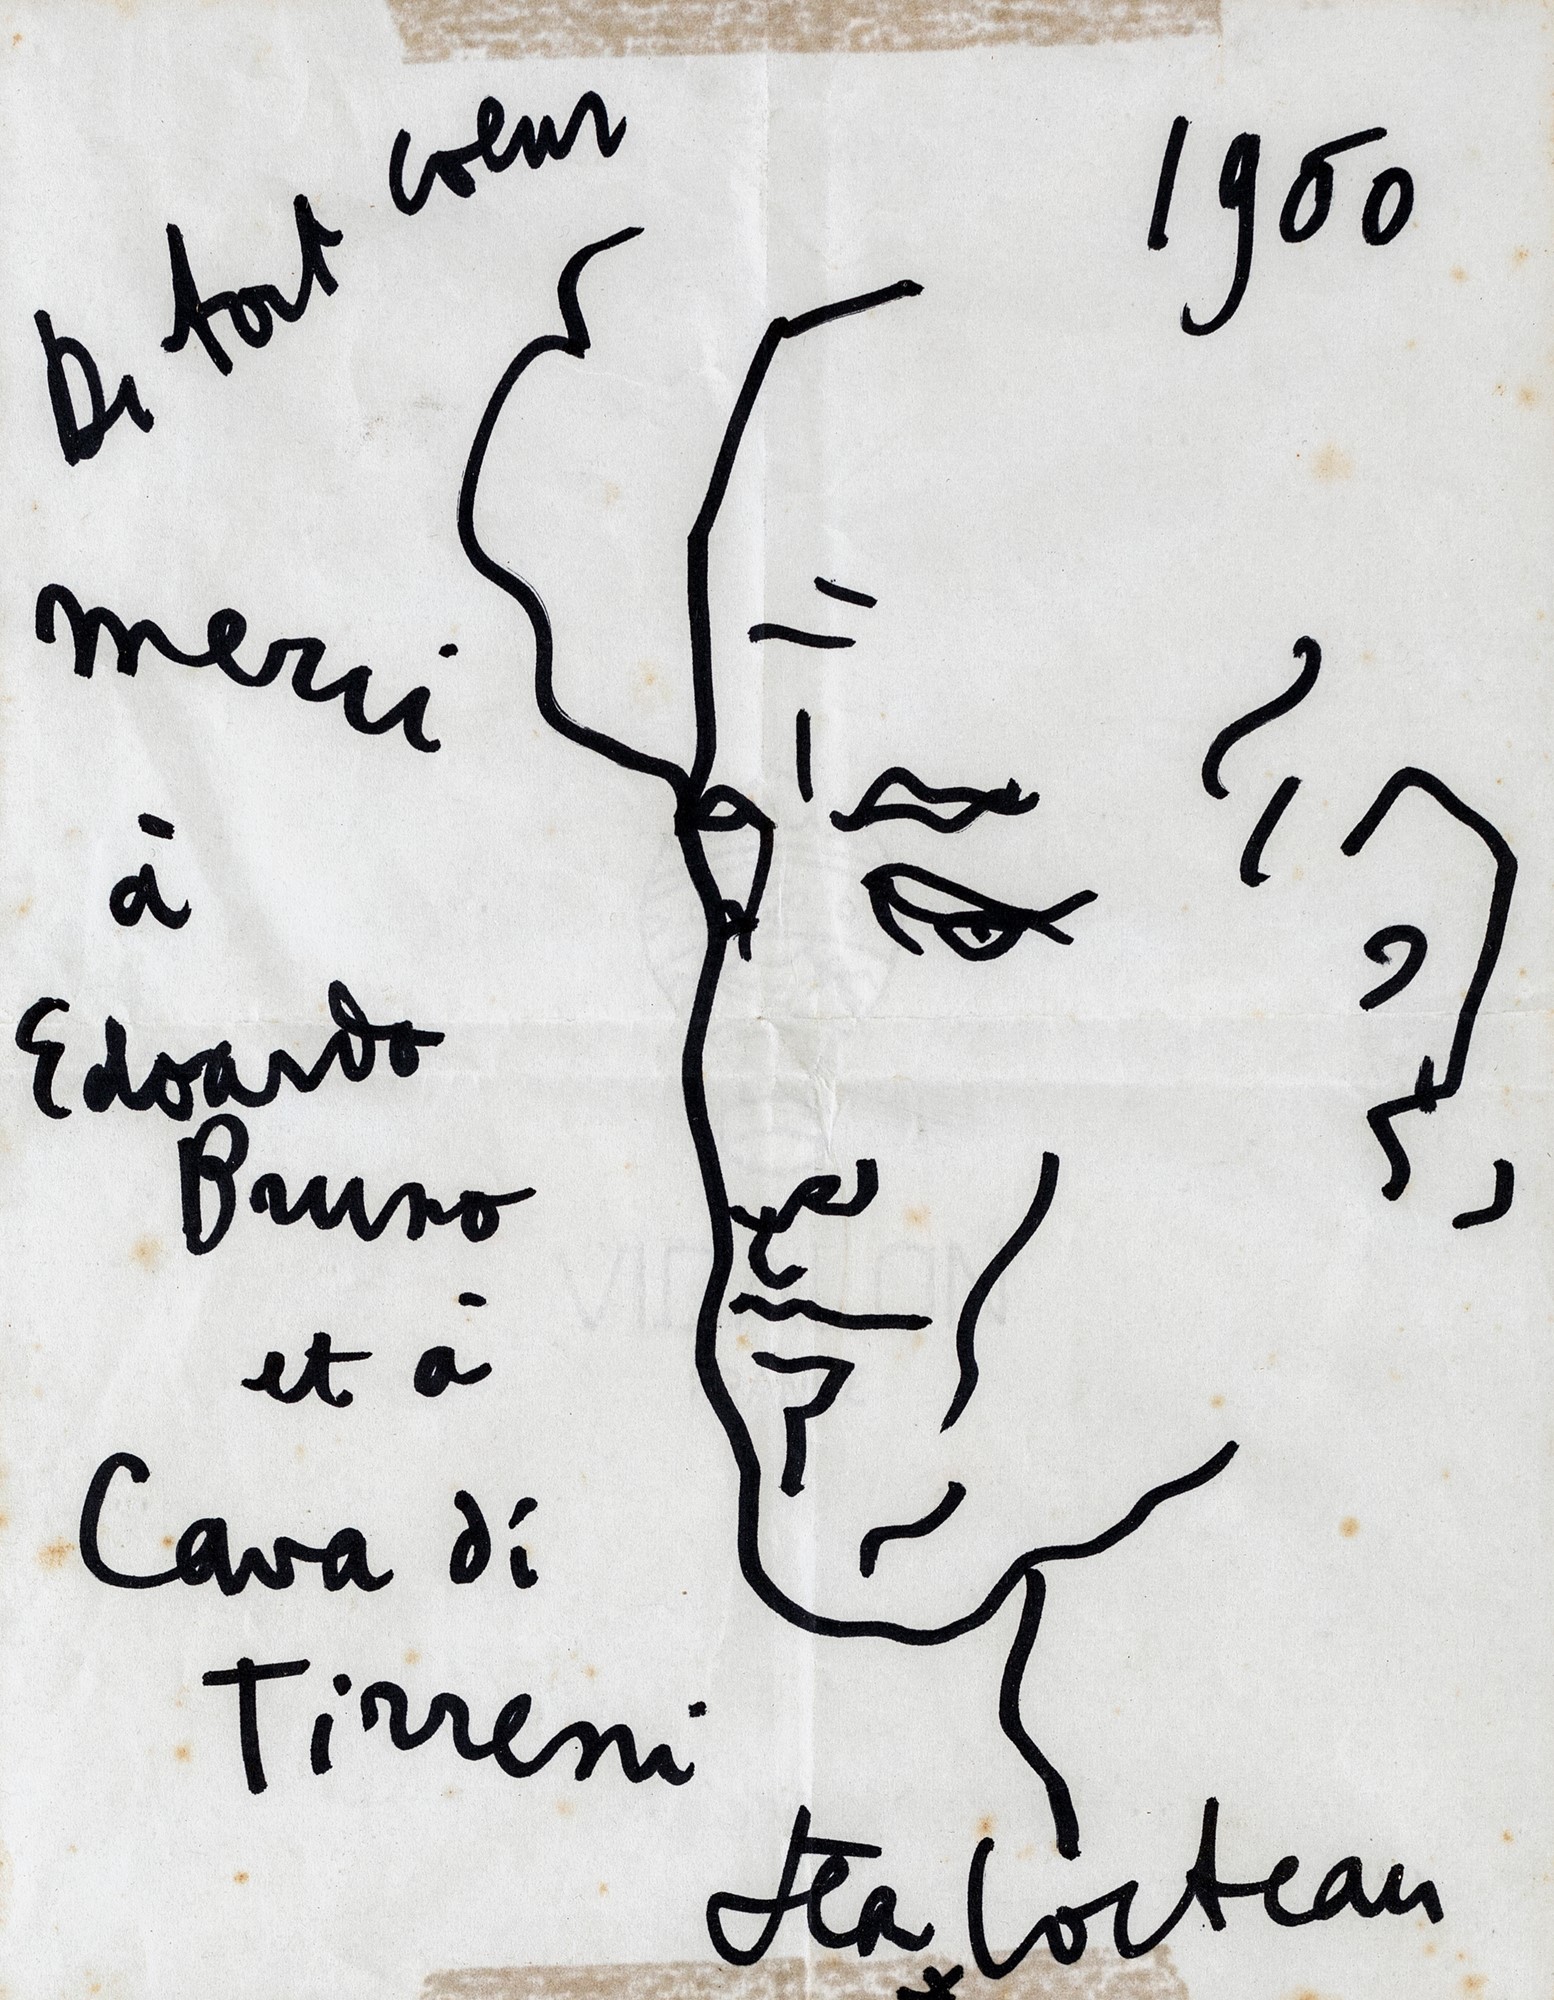 De tout cœur
1960
merci
à
Edoardo
Bruno
et à
Cava di
Tirreni
Jean Cocteau